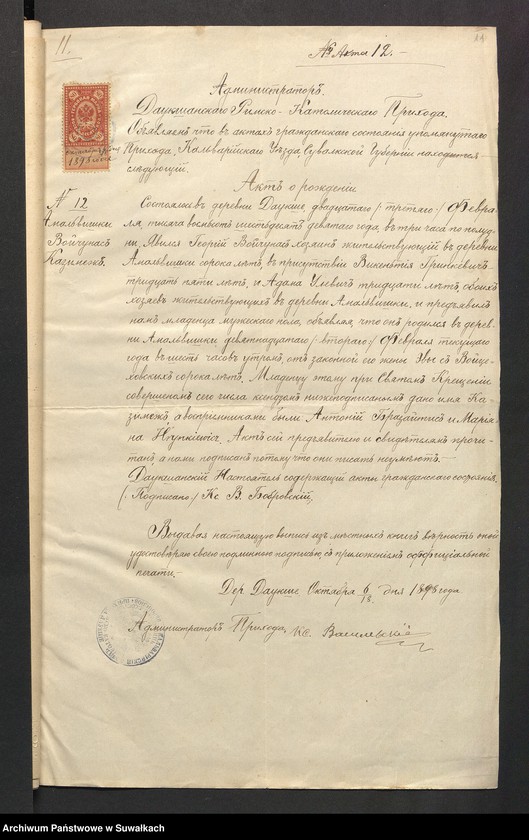 11.
№ Акта 12.-
Администраторъ
Даукшанскаго Римско-Католическаго Прихода,
Объявляетъ что въ актахъ гражданскаго состоянія упомянутаго
Прихода, Кальварійскаго Уѣзда, Сувалкской Губерніи находится
слѣдующій.
1898 года
Актъ о рожденіи
№ 12
Амальвишки
Войчунасъ
Казимежъ.
Состоялось въ деревни Даукше, двадцатаго /:третьяго:/ Февра-
ля, тысяча восемьсотъ шестьдесятъ девятаго года, въ три часа по полуд-
ни. Явился Георгій Войчунасъ хозяинъ жительствующій въ деревни
Амальвишки сорока лѣтъ, въ присутствіи Викентія Гринкевичъ
тридцать пяти лѣтъ, и Адама Улевичъ тридцати лѣтъ, обоихъ
хозяевъ жительствующихъ въ деревни Амальвишки, и предъявилъ
намъ младенца мужескаго пола, объявляя, что онъ родился въ дерев-
ни Амальвишки девятнадцатаго /:втораго:/ Февраля текущаго
года въ шесть часовъ утромъ, отъ законной его жены Эвы съ Войце-
ховскихъ сорока лѣтъ. Младенцу этому при Святомъ Крещеніи
совершенномъ сего числа ксендзомъ нижеподписаннымъ дано имя Ка-
зимежъ, а воспріемниками были Антоній Бразайтисъ и Маріа-
на Актъ сей предъявителю и свидѣтелямъ прочи-
танъ, а нами подписанъ потому что они писать неумѣютъ.-
Даукшанскій Настоятель содержащій акты гражданскаго состоянія,
/:Подписано:/ Кс. В. Бобровскій.
Выдавая настоящую выпись изъ мѣстныхъ книгъ вѣрность оной
удостовѣряю своею подлинною подписью, съ приложеніемъ оффиціальной
печати.-
Дер. Даукше Октября 6/18 дня 1898 года
Администраторъ Прихода, Кс. Василевскій
Archiwum Państwowe w Suwałkach